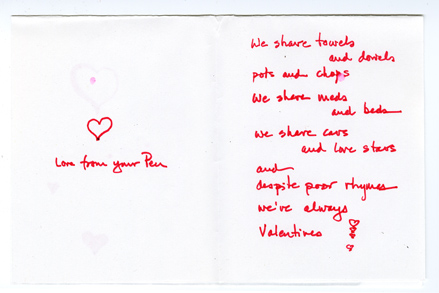 Love from your Pen
We share towels
and dowels
pots and chops
We share meds
and beds
we share cars
and love stars
and
despite poor rhymes
we've always
Valentines